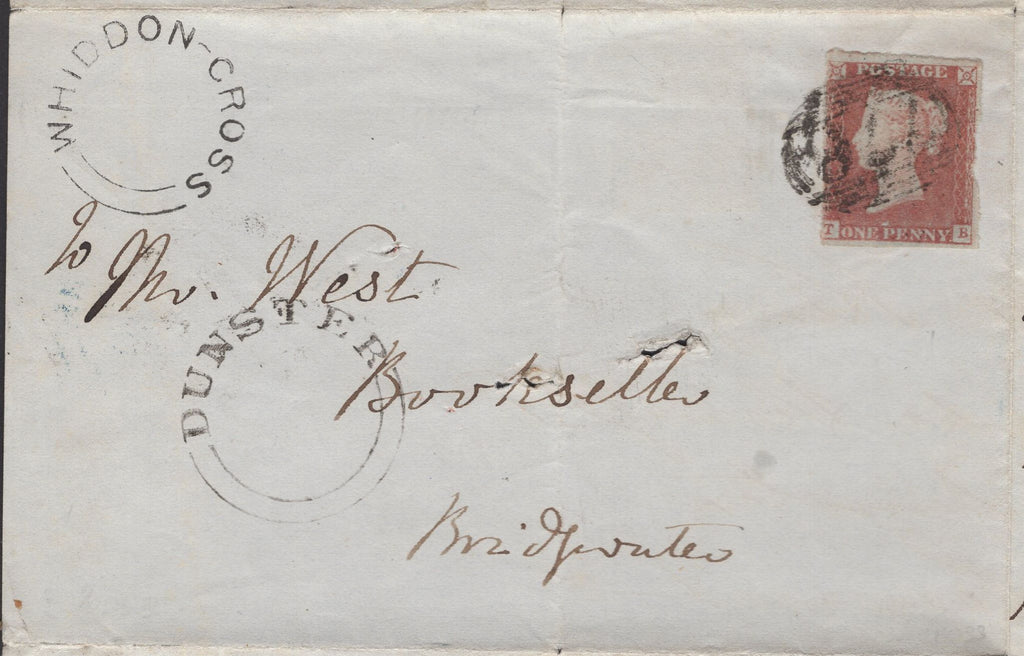 WHIDDON-CROSS
POSTAGE
ONE PENNY
T B
To Mr. West
DUNSTER
Bookseller
Bridgwater